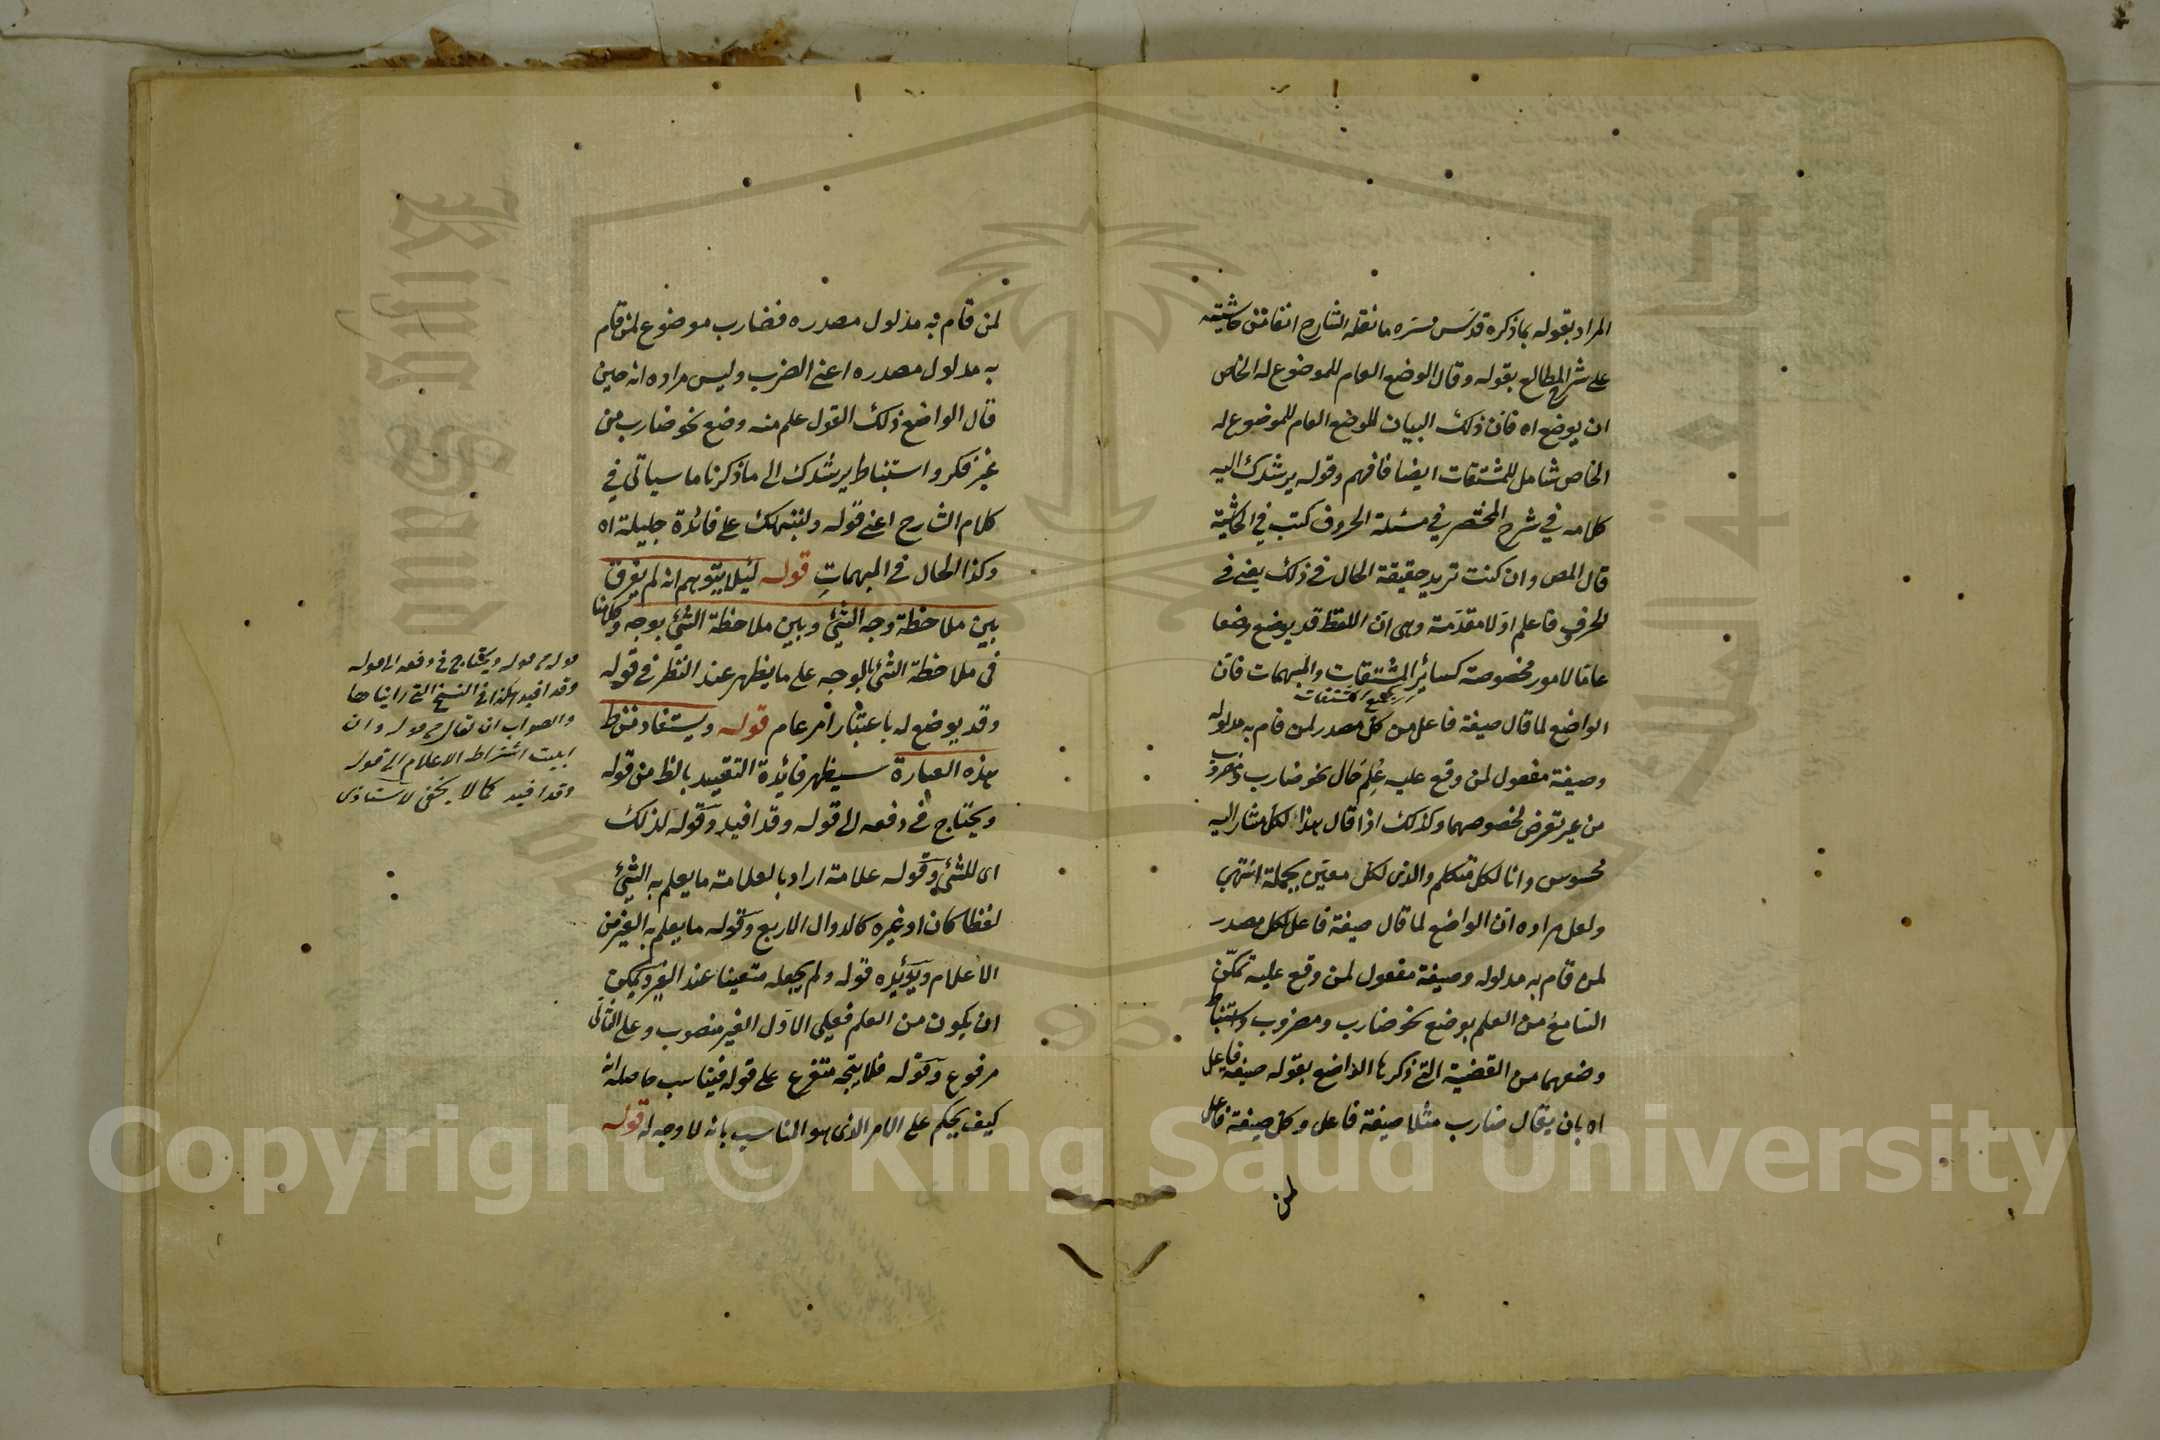 المراد بقوله بما ذكره قدس سره ما نقله الشارح انفا من حاشيته
على شرح المطالع بقوله وقال الوضع العام للموضوع له الخاص
ان يوضع اه فان ذلك البيان للوضع العام للموضوع له
الخاص شامل للمشتقات ايضا فافهم وقوله يرشدك اليه
كلامه في شرح المختصر في مسئلة الحروف كتب في الحاشية
قال المص وان كنت تريد حقيقة الحال في ذلك يعنى في
الحرف فاعلم اولا مقدمة وهى ان اللفظ قد يوضع وضعا
عاما لامور مخصوصة كسائر المشتقات والمبهمات فان
الواضع لما قال صيغة فاعل من كل مصدر لمن قام به مدلوله
وصيغة مفعول لمن وقع عليه علم حال نحو ضارب ومضروب
من غير تعرض لخصوصهما وكذلك اذا قال هذا لكل مشار اليه
محسوس وانا لكل متكلم والذى لكل معين بجملة انتهى
ولعل مراده ان الواضع لما قال صيغة فاعل لكل مصدر
لمن قام به مدلوله وصيغة مفعول لمن وقع عليه تمكن
السامع من العلم بوضع نحو ضارب ومضروب واستنباط
وضعهما من القضية التى ذكرها الواضع بقوله صيغة فاعل
اه بان يقال ضارب مثلا صيغة فاعل وكل صيغة فاعل
لمن
لمن قام به مدلول مصدره فضارب موضوع لمن قام
به مدلول مصدره اعنى الضرب وليس مراده انه حين
قال الواضع ذلك القول علم منه وضع نحو ضارب من
غير فكر واستنباط يرشدك الى ما ذكرنا ما سياتى في
كلام الشارح اعنى قوله ولننبهك على فائدة جليلة اه
وكذا الحال في المبهمات قوله ليلا يتوهم انه لم يفرق
بين ملاحظة وجه الشئ وبين ملاحظة الشئ بوجه
فى ملاحظة الشئ بالوجه على ما يظهر عند النظر في قوله
وقد يوضع له باعتبار امر عام قوله ويستفاد من
هذه العبارة سيظهر فائدة التقييد بالظ من قوله
ويحتاج في دفعه الى قوله وقد افيد وقوله لذلك
اى للشئ وقوله علامة اراد بالعلامة ما يعلم به الشئ
لفظا كان او غيره كالدوال الاربع وقوله ما يعلم به الغير من
الاعلام ويؤيده قوله ولم يجعله متعينا عند الغير ويمكن
ان يكون من العلم فعلى الاول الغير منصوب وعلى الثانى
مرفوع وقوله فلا يتجه متفرع على قوله فيناسب حاصله انه
كيف يحكم على الامر الذى هو المناسب بانه لا وجه له قوله
ويحتاج في دفعه الى قوله
وقد افيد هكذا في النسخ التى رايناها
والصواب ان يقال قوله وان
ابيت اشتراط الاعلام الى قوله
وقد افيد كما لا يخفى لاستاذى
Copyright © King Saud University